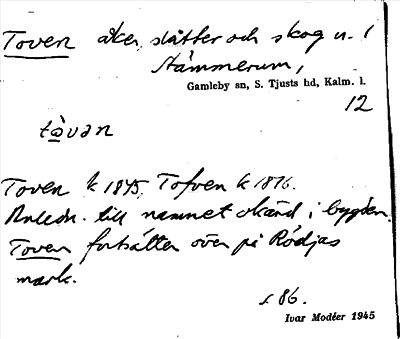 Toven åker, slåtter och skog u. l
Stämmerum,
Gamleby sn, S. Tjusts hd, Kalm. l.
12
tòvan
Toven k 1845, Tofven k 1876.
Anledn. till namnet okänd i bygden.
Toven fortsätter över på Rödjas
mark.
s 86.
Ivar Modéer 1945